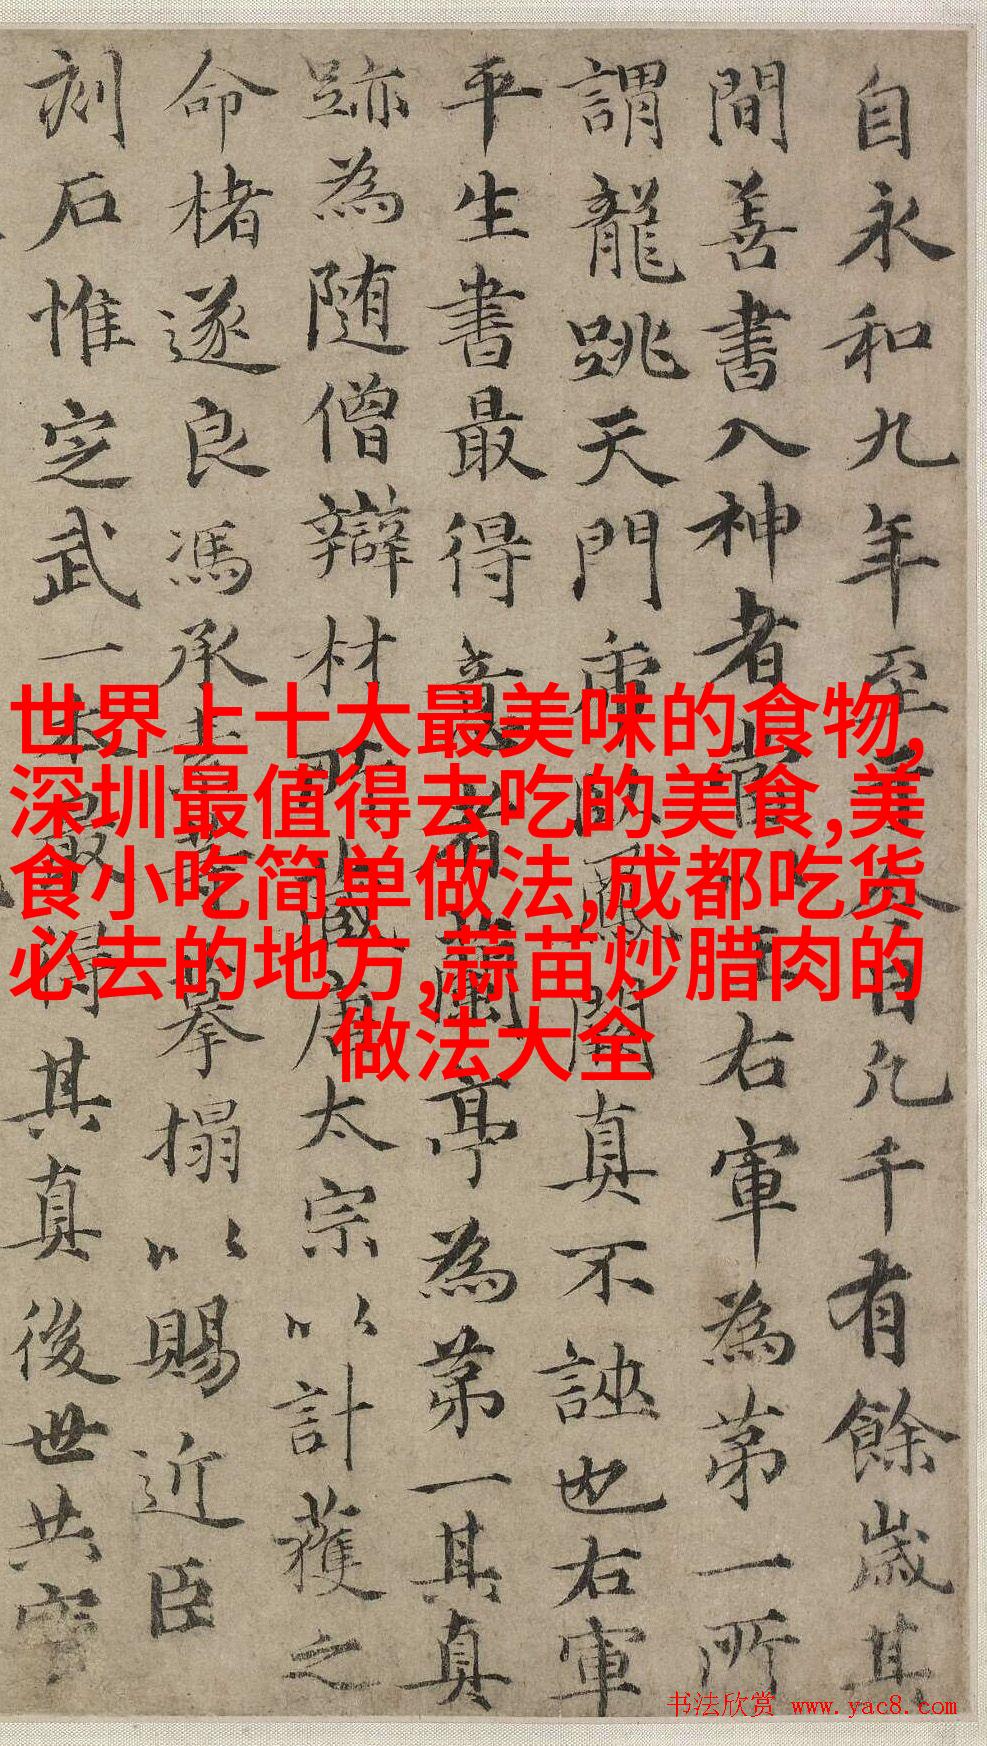 自永和九年至今日凡千有餘歲其
間善書入神者當以王右軍為第一所
謂龍跳天門虎臥鳳閣真不誣也右軍
平生書最得意者蘭亭為第一其真
跡為随僧辯材所藏唐太宗以計獲之
命楮遂良馮承素輩摹搨以賜近臣
刻石惟定武一本最得其真後世共寶
世界上十大最美味的食物,
深圳最值得去吃的美食,美
食小吃简单做法,成都吃货
必去的地方,蒜苗炒腊肉的
做法大全
书法欣赏 www.yac8.com